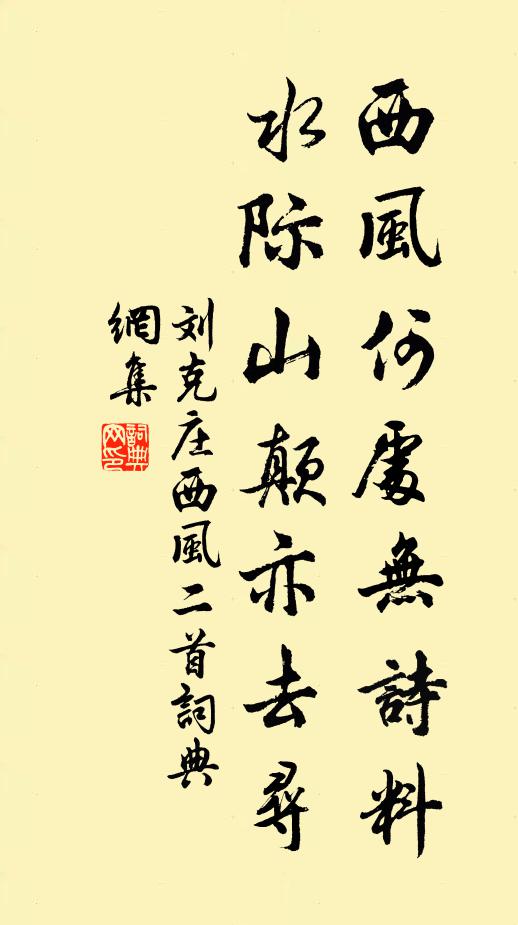 西風何處無詩料
水际山颠亦去尋
刘克庄西風二首詞典
網集
詞典
网印